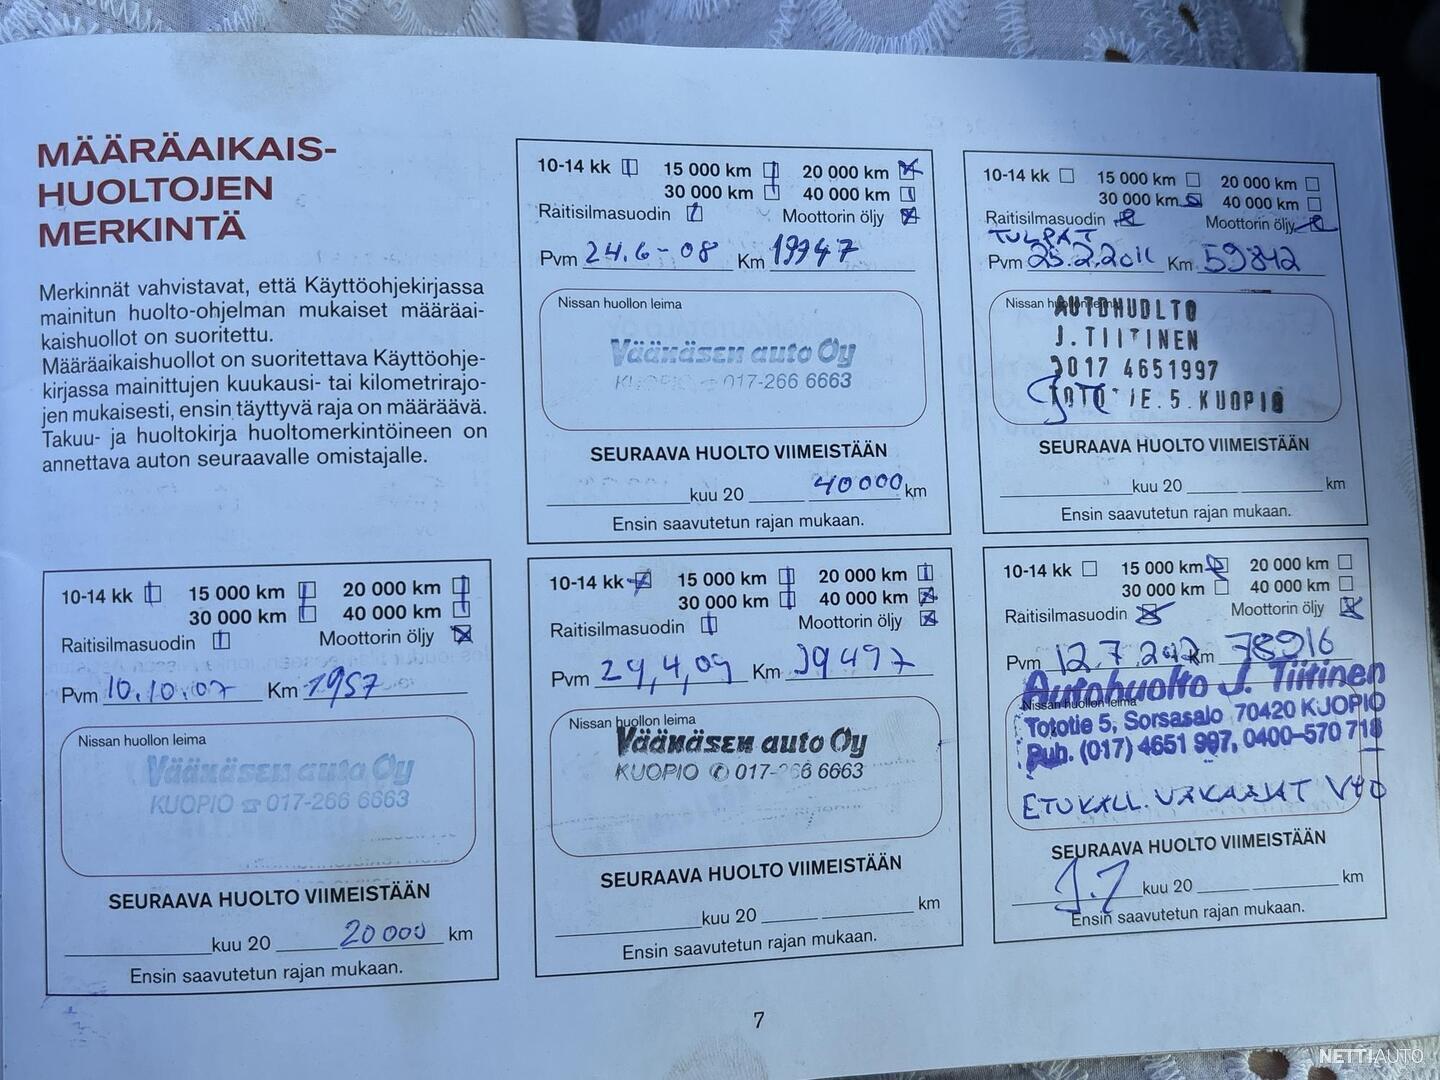 MÄÄRÄAIKAIS-
HUOLTOJEN
MERKINTÄ
Merkinnät vahvistavat, että Käyttöohjekirjassa
mainitun huolto-ohjelman mukaiset määräai-
kaishuollot on suoritettu.
Määräaikaishuollot on suoritettava Käyttöohje-
kirjassa mainittujen kuukausi- tai kilometrirajo-
jen mukaisesti, ensin täyttyvä raja on määräävä.
Takuu- ja huoltokirja huoltomerkintöineen on
annettava auton seuraavalle omistajalle.
10-14 kk 15 000 km 20 000 km
30 000 km 40 000 km
Raitisilmasuodin Moottorin öljy
Pvm 10.10.07 Km 1957
Nissan huollon leima
Väänäsen auto Oy
KUOPIO ☎ 017-266 6663
SEURAAVA HUOLTO VIIMEISTÄÄN
kuu 20 20 000 km
Ensin saavutetun rajan mukaan.
10-14 kk 15 000 km 20 000 km
30 000 km 40 000 km
Raitisilmasuodin Moottorin öljy
Pvm 24.6-08 Km 19947
Nissan huollon leima
Väänäsen auto Oy
KUOPIO 017-266 6663
SEURAAVA HUOLTO VIIMEISTÄÄN
kuu 20 40000 km
Ensin saavutetun rajan mukaan.
10-14 kk 15 000 km 20 000 km
30 000 km 40 000 km
Raitisilmasuodin Moottorin öljy
Pvm 29,4,09 Km 39497
Nissan huollon leima
Väänäsen auto Oy
KUOPIO ✆ 017-266 6663
SEURAAVA HUOLTO VIIMEISTÄÄN
kuu 20 km
Ensin saavutetun rajan mukaan.
10-14 kk 15 000 km 20 000 km
30 000 km 40 000 km
Raitisilmasuodin Moottorin öljy
TULPAT
Pvm 25.2.2011 Km 59842
Nissan huollon leima
AUTOHUOLTO
J.TIITINEN
017 4651997
TOTOTIE.5.KUOPIO
SEURAAVA HUOLTO VIIMEISTÄÄN
kuu 20 km
Ensin saavutetun rajan mukaan.
10-14 kk 15 000 km 20 000 km
30 000 km 40 000 km
Raitisilmasuodin Moottorin öljy
Pvm 12.7.2012 Km 78916
Autohuolto J. Tiitinen
Nissan huollon leima
Tototie 5, Sorsasalo 70420 KUOPIO
Puh. (017) 4651 997, 0400-570 718
ETUKALL.
SEURAAVA HUOLTO VIIMEISTÄÄN
J.T kuu 20 km
Ensin saavutetun rajan mukaan.
7
NETTIAUTO